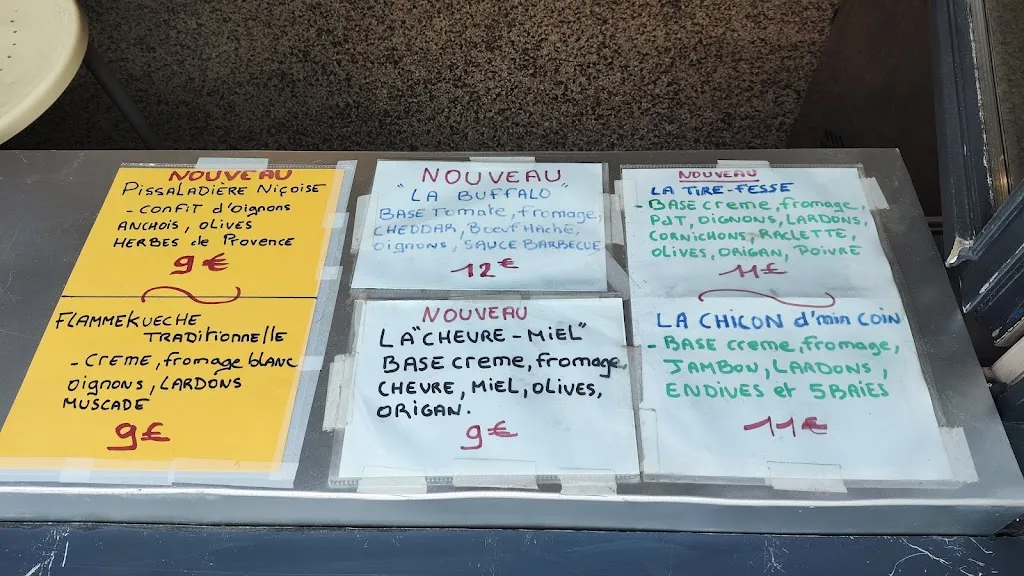 NOUVEAU
PISSALADIÈRE NIÇOISE
- CONFIT d'oignons
ANCHOIS, OLIVES
HERBES de PROVENCE
9€
FLAMMEKUECHE
TRADITIONNELLE
- CREME, fromage blanc
oignons, LARDONS
MUSCADE
9€
NOUVEAU
"LA BUFFALO"
BASE Tomate, fromage,
CHEDDAR, Boeuf HACHÉ,
oignons, SAUCE BARBECUE
12€
NOUVEAU
LA "CHEVRE - MIEL"
BASE creme, fromage,
CHEVRE, MIEL, OLIVES,
ORIGAN.
9€
NOUVEAU
LA TIRE-FESSE
- BASE creme, fromage,
PDT, OIGNONS, LARDONS,
CORNICHONS, RACLETTE,
OLIVES, ORIGAN, POIVRE
11€
LA CHICON d'min COIN
- BASE creme, fromage,
JAMBON, LARDONS,
ENDIVES et 5 BAIES
11€